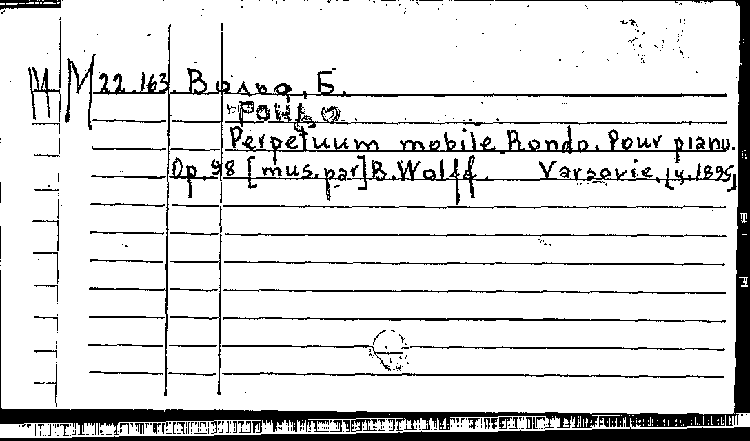 М М 22.163. Вольф, Б.
Рондо
Perpetuum mobile. Rondo. Pour piano.
Op. 98 [mus. par] B. Wolff. Varsovie, [y. 1895]